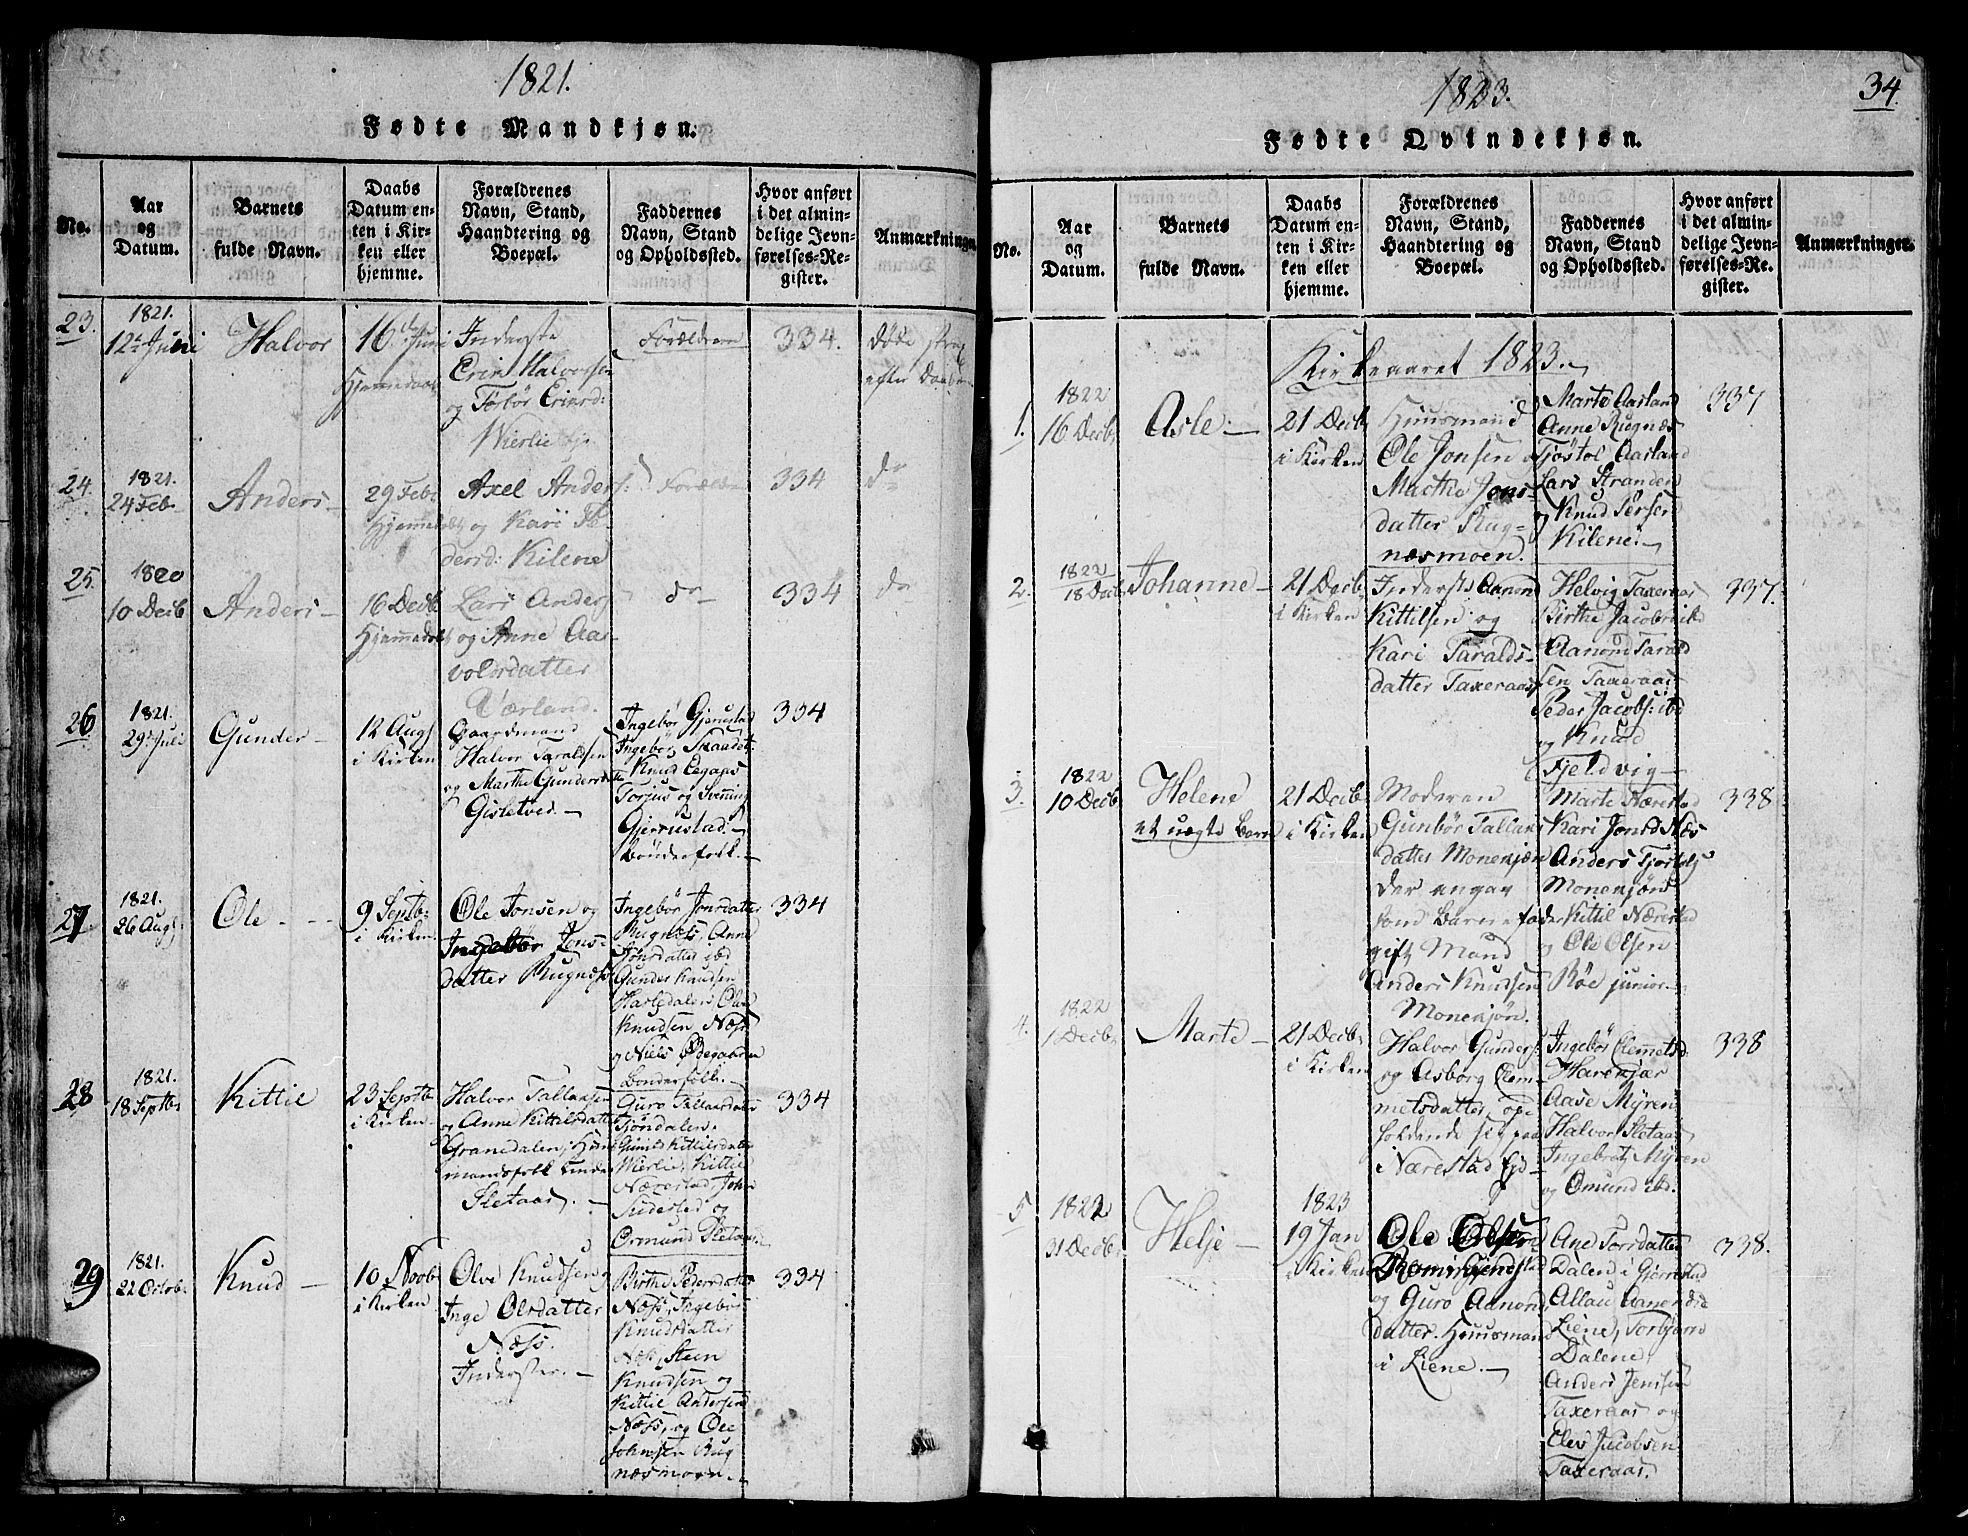 1821.
Fødte Mandkjøn.
No.
Aar
og
Datum.
Barnets
fulde Navn.
Daabs
Datum en-
ten i Kir-
ken eller
hjemme.
Forældrenes
Navn, Stand,
Haandtering og
Boepæl.
Faddernes
Navn, Stand
og Opholdssted.
Hvor anført
i det almin-
delige Jevn-
førelses-Re-
gister.
Anmærkninger
23.
1821.
12te Juni
Halvor
16de Juni
Hjemmedøbt
Inderste
Halvorsen
og Torbør
Wierlie
Forældrene
334.
døde strax
efter Daaben
24.
1821.
24 Feb.
Anders
29 Febr
Hjemmedøbt
Axel Anders:
og Kari
Kilene
Forældre
334
do
25.
1820
10 Decb
Anders
16 Decb.
Hjemmedøbt
Lars Anders
og Anne Aas-
voldsdatter
Værland.
do
334
do
26
1821.
29 Juli
Gunder
12 Aug
i Kirken
Gaardmand
Halvor Taraldsen
og Marthe Gunders
Gisletved.
Ingebør Gjerustad
Ingebør
Knud
Torjus og Svenning
Gjerrustad.
bønderfolk.
334
27
1821.
26 Aug
Ole
9 Septb:
i Kirken
Ole Jonsen og
Jons-
datter Rugnæss
Ingebør Jonsdatter
Rugnæss, Anne
Jonsdatter ibd
Gunder Knudsen
Harledalen
Knudsen Næss
og Niels Ødegaarden
Bonderfolk.
334
28
1821.
18 Septbr
Kittil
23 Septb
i Kirken
Halvor Tallaksen
og Anne Kittilsdatter
Granedalen, Huus-
mandsfolk under
Sletaas.
Guro
Tjøndalen,
Gunild Kittilsdatter
Wierlie, Kittil
Nærestad, John
og
Ormund Sletaas.
334
29
1821.
22 Octobr
Knud
10 Novb
i Kirken
Olve Knudsen
Inge Olsdatter
Næss.
Inderster.
Birthe Pedersdatter
Næss, Ingebør
Knudsdatter
Næs, Steen
Knudsen og
Kittil Andersen
Næss, og Ole
Johnsen Rug
næsmoen.
334
1823.
34.
Fødte Qvindekjøn.
No.
Aar
og
Datum.
Barnets
fulde Navn.
Daabs
Datum en-
ten i Kir-
ken eller
hjemme.
Forældrenes
Navn, Stand,
Haandtering og
Boepæl.
Faddernes
Navn, Stand
og Opholdssted.
Hvor anført
i det almin-
delige Jevn-
førelses-Re-
gister.
Anmærkninger.
Kirkeaaret 1823.
1.
1822
16 Decb
Asle
21 Decb
i Kirken
Huusmand
Ole Jonsen
Marthe Jons-
datter Rug-
næsmoen.
Marte Aasland
Anne Rugnæs
Tjøstol Aasland
Lars Stranden
og Knud
Kilene.
337
2.
1822
18 Decb
Johanne
21 Decb
i Kirken
Inderste Aanon
Kittilsen og
Kari Taralds-
datter Taxeraas
Helvig Taxeraas
Birthe Jacobs ibd
Aanond Tarald
sen Taxeraas
Peder Jacobs: ibd
og Knud
Fjeldvig
337.
3.
1822
10 Decb
Helene
et uægte Barn
21 Decb
i Kirken
Moderen
Gunbør Tallaks
datter Monekjøn
der angav
som Barnefader
gift Mand
Anders Knudsen
Monekjøn.
Marte Nærestad
Kari Jonsd Næs
Anders
Monekjøn
Kittil Nærestad
og Ole Olsen
Røe junior.
338
4.
1822
1 Decb
Marte
21 Decb.
i Kirken
Halvor Gunders:
og Asborg Clem-
metsdatter, op-
holdende sig paa
Nærestad Ejd-
Ingebør Clemmetsd
Harekjær
Aase Myren
Halvor Sletaas
Ingebret Myren
og Omund ibd.
338
5
1822
31 Decb
Helje
1823
19 Jan
i Kirken
Ole Olsen
og Guro Aanonds
datter. Huusmand
i Liene.
Ane Torsdatter
Dalen i Gjerrestad
Allau
Liene, Torbjørn
Dalene,
Anders Jensen
Taxeraas og
Elev Jacobsen
Taxeraas.
338.